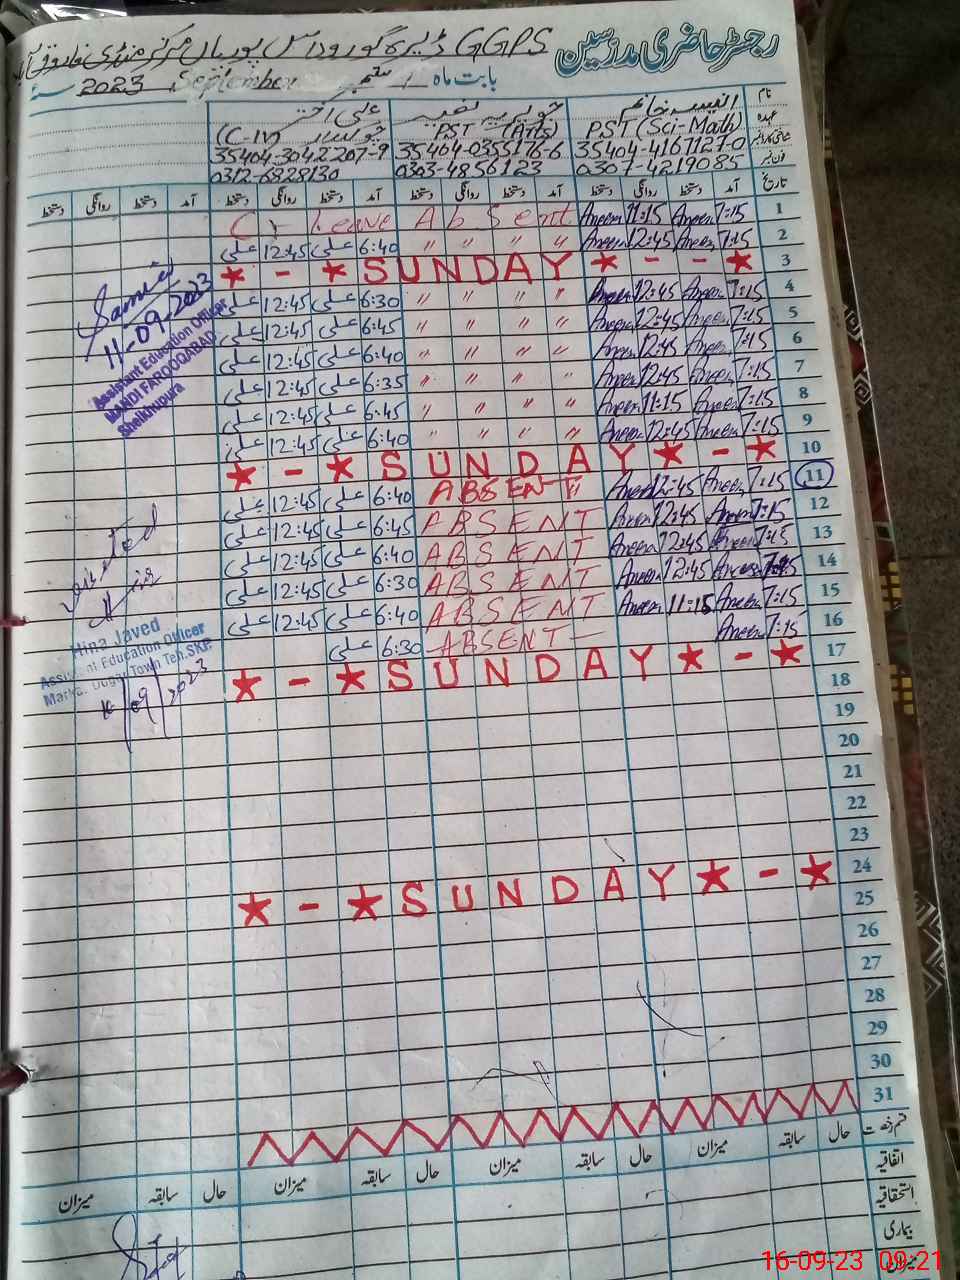 رجسٹر حاضری مدرسین
GGPS ڈیرہ گورودراس پوریاں مرکز منڈی فاروق آباد
بابت ماہ ستمبر September 2023
نام انیسہ خانم جویریہ نفیر علی اختر
عہدہ PST (Sci-Math) PST (Arts) چوکیدار (C-IV)
شناختی کارڈ نمبر 35404-4161127-0 35404-0355176-6 35404-3042207-9
فون نمبر 0307-4219085 0303-4856123 0312-6828130
تاریخ آمد دستخط روانگی دستخط آمد دستخط روانگی دستخط آمد دستخط روانگی دستخط آمد دستخط روانگی دستخط
1 7:15 Aneesa 11:15 Aneesa Absent C - Leave
2 7:15 Aneesa 12:45 Aneesa 〃 〃 〃 〃 6:40 علی 12:45 علی
3 ★ - ★ SUNDAY ★ - - ★
4 7:15 Aneesa 12:45 Aneesa 〃 〃 〃 〃 6:30 علی 12:45 علی
5 7:15 Aneesa 12:45 Aneesa 〃 〃 〃 〃 6:45 علی 12:45 علی
6 7:15 Aneesa 12:45 Aneesa 〃 〃 〃 〃 6:40 علی 12:45 علی
7 7:15 Aneesa 12:45 Aneesa 〃 〃 〃 〃 6:35 علی 12:45 علی
8 7:15 Aneesa 11:15 Aneesa 〃 〃 〃 〃 6:45 علی 12:45 علی
9 7:15 Aneesa 12:45 Aneesa 〃 〃 〃 〃 6:40 علی 12:45 علی
10 ★ - ★ SUNDAY ★ - ★
11 7:15 Aneesa 12:45 Aneesa ABSENT 6:40 علی 12:45 علی
12 7:15 Aneesa 12:45 Aneesa ABSENT 6:45 علی 12:45 علی
13 7:15 Aneesa 12:45 Aneesa ABSENT 6:40 علی 12:45 علی
14 7:15 Aneesa 12:45 Aneesa ABSENT 6:30 علی 12:45 علی
15 7:15 Aneesa 11:15 Aneesa ABSENT 6:40 علی 12:45 علی
16 7:15 Aneesa ABSENT 6:30 علی
17 ★ - ★ SUNDAY ★ - ★
18
19
20
21
22
23
24 ★ - ★ SUNDAY ★ - ★
25
26
27
28
29
30
31
قسم رخصت حال سابقہ میزان حال سابقہ میزان حال سابقہ میزان حال سابقہ میزان
اتفاقیہ
استحقاقیہ
بیماری
میزان
11-09-2023
Assistant Education Officer
MANDI FAROOQABAD
Sheikhupura
Visited
Hina Javed
Assistant Education Officer
Town Teh. SKP.
16-09-23 09:21